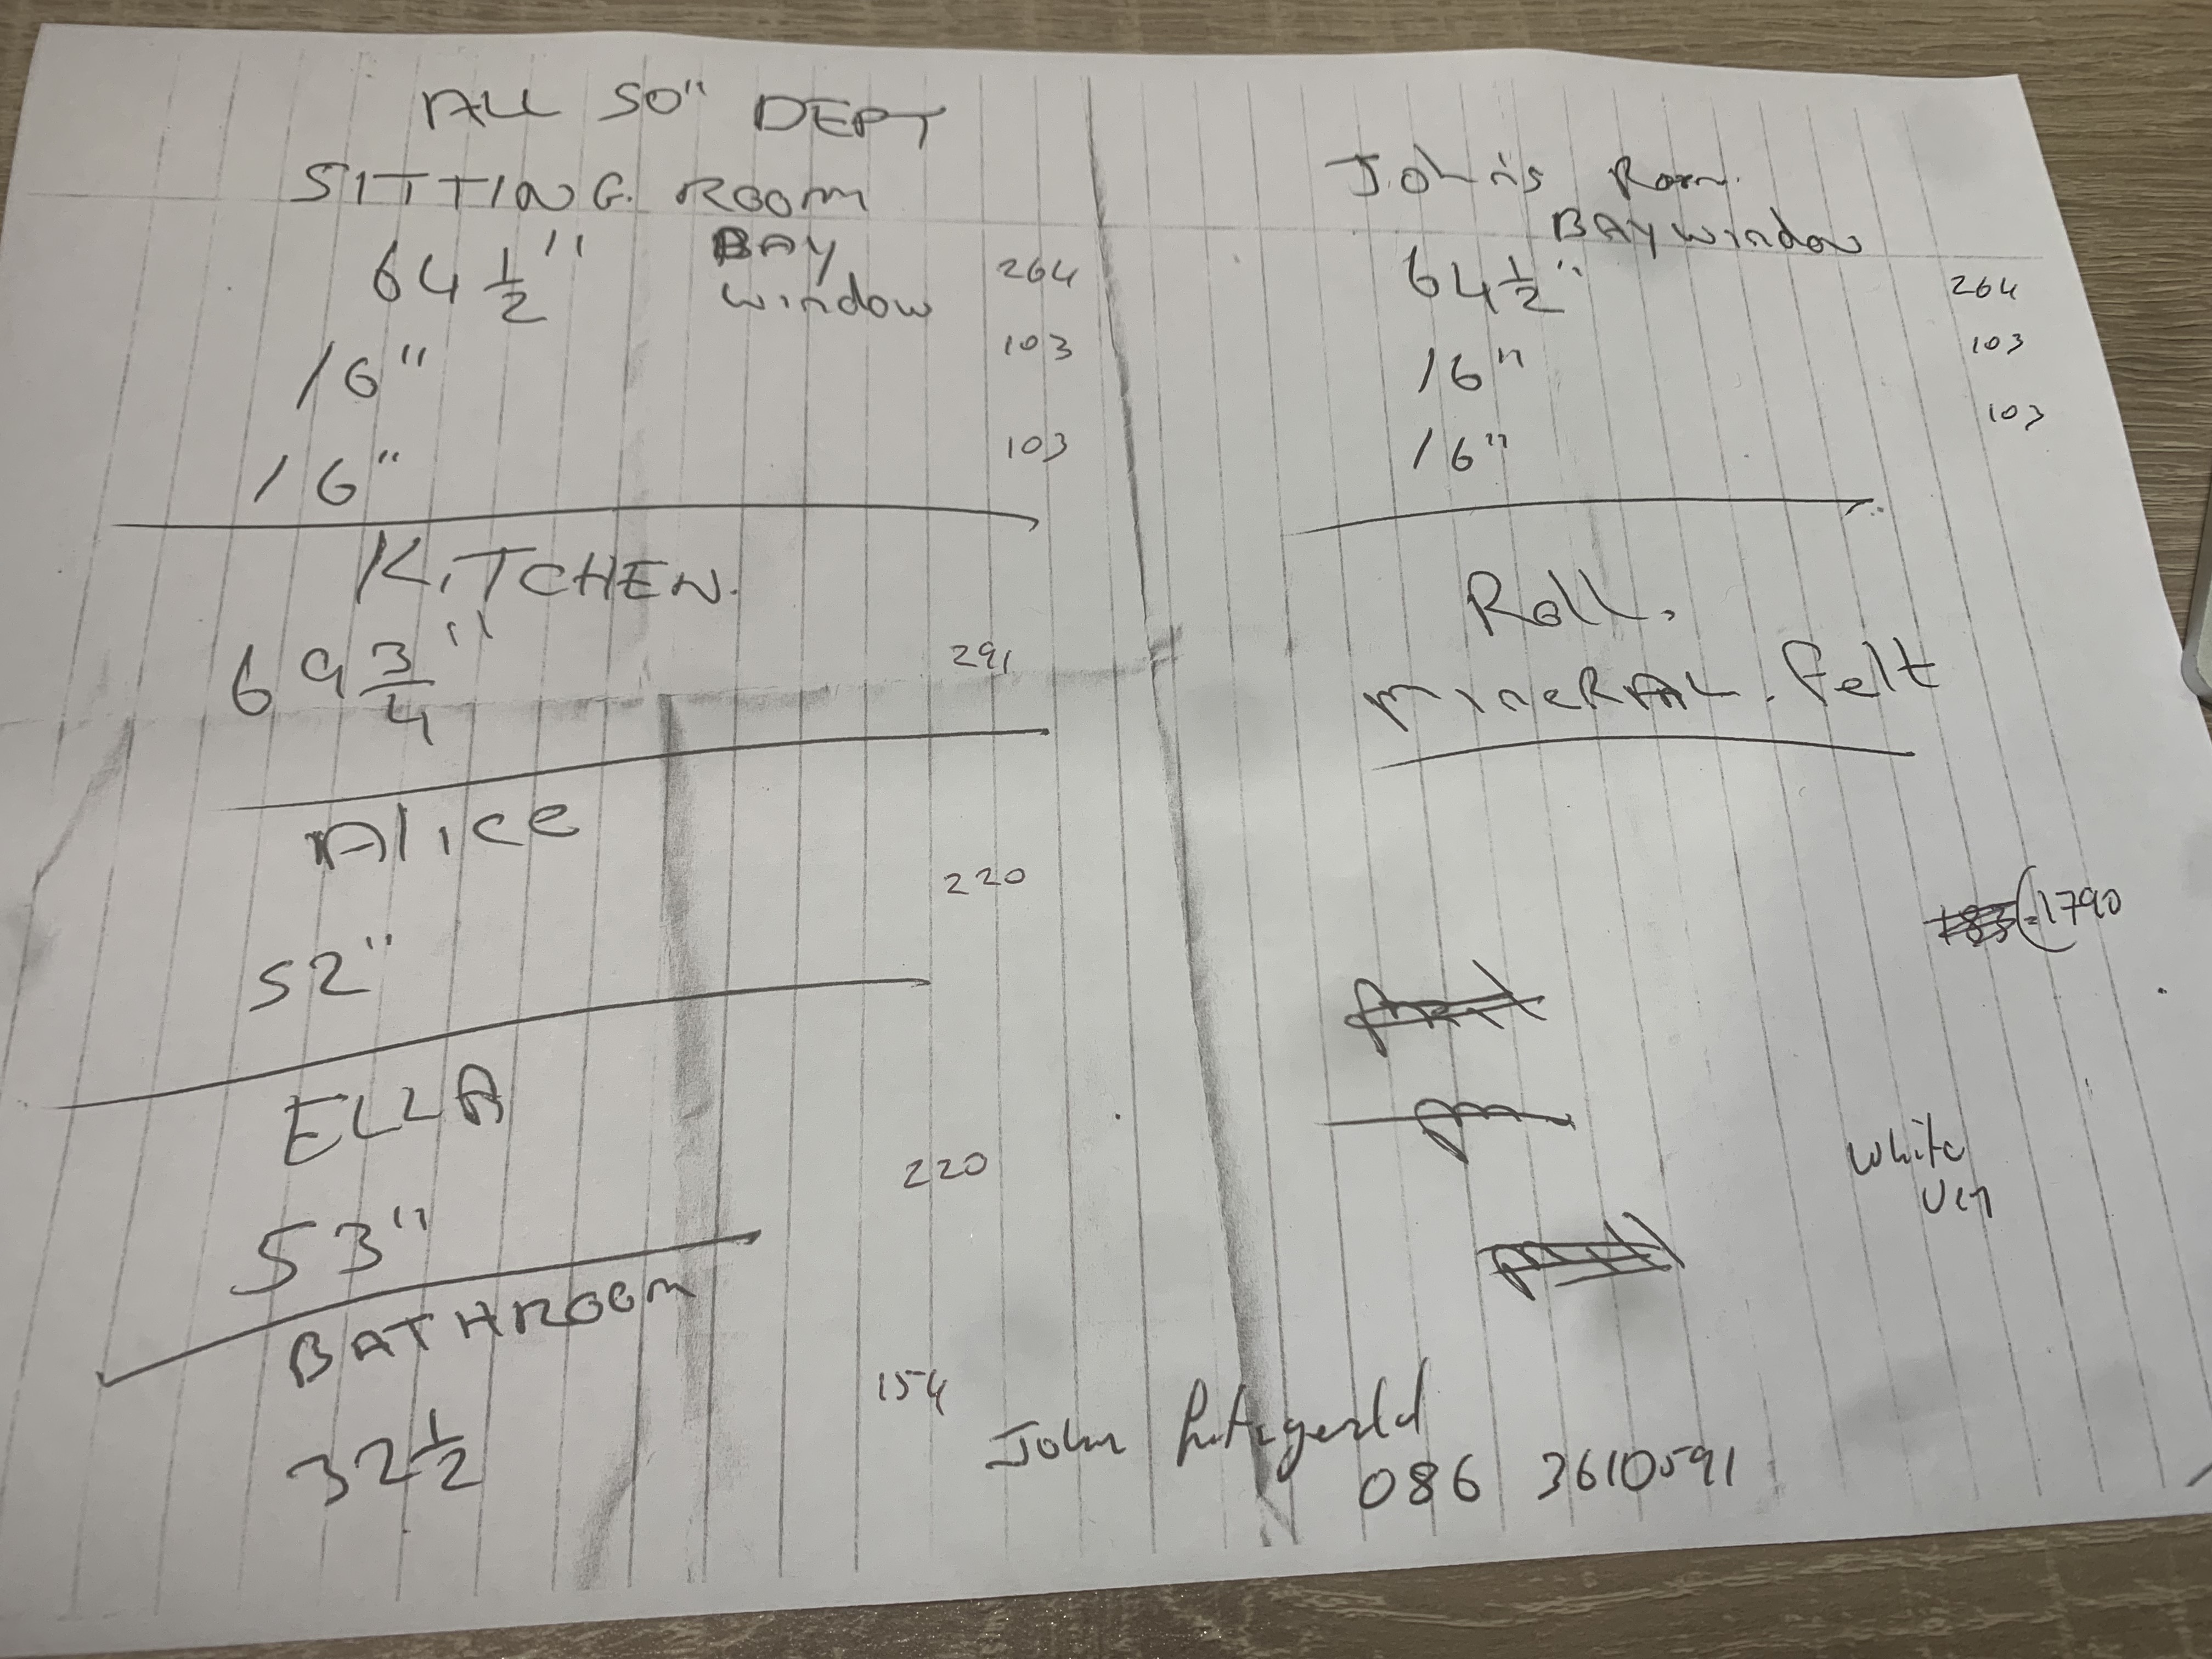 ALL 50" DEPT
SITTING ROOM
64 1/2" BAY 264
window
16" 103
16" 103
KITCHEN.
69 3/4" 291
Alice
220
52"
ELLA
220
53"
BATHROOM
154
32 1/2
John's Room.
BAY window
64 1/2" 264
16" 103
16" 103
Roll.
mineRAL. felt
1790
White
John Fitzgerald
086 3610591